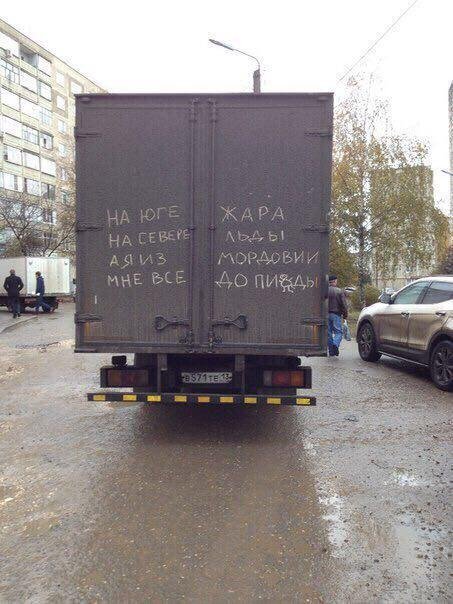 НА ЮГЕ ЖАРА
НА СЕВЕРЕ ЛЬДЫ
А Я ИЗ МОРДОВИИ
МНЕ ВСЕ ДО ПИЗДЫ
В571ТЕ 13